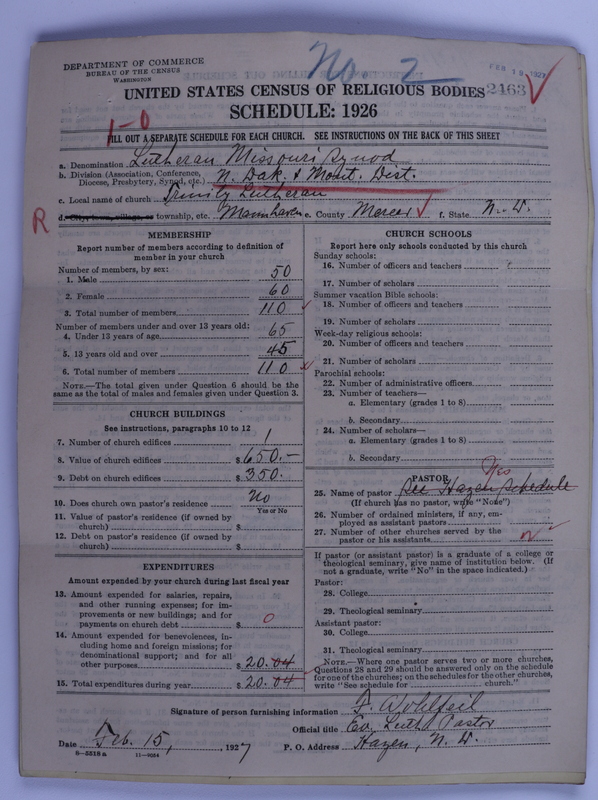 No. 2
DEPARTMENT OF COMMERCE
BUREAU OF THE CENSUS
WASHINGTON
FEB 19 1927
UNITED STATES CENSUS OF RELIGIOUS BODIES 2463
SCHEDULE: 1926
1-0
FILL OUT A SEPARATE SCHEDULE FOR EACH CHURCH. SEE INSTRUCTIONS ON THE BACK OF THIS SHEET
a. Denomination Lutheran Missouri Synod
b. Division (Association, Conference, Diocese, Presbytery, Synod, etc.) N. Dak. & Mont. Dist.
c. Local name of church Trinity Lutheran
R
d. City, town, village, or township, etc. Mannhaven e. County Mercer f. State N. D.
MEMBERSHIP
Report number of members according to definition of member in your church
Number of members, by sex:
1. Male 50
2. Female 60
3. Total number of members 110
Number of members under and over 13 years old:
4. Under 13 years of age 65
5. 13 years old and over 45
6. Total number of members 110
NOTE.—The total given under Question 6 should be the same as the total of males and females given under Question 3.
CHURCH BUILDINGS
See instructions, paragraphs 10 to 12
7. Number of church edifices 1
8. Value of church edifices $650.-
9. Debt on church edifices $350.
10. Does church own pastor's residence No
Yes or No
11. Value of pastor's residence (if owned by church) $
12. Debt on pastor's residence (if owned by church) $
EXPENDITURES
Amount expended by your church during last fiscal year
13. Amount expended for salaries, repairs, and other running expenses; for improvements or new buildings; and for payments on church debt $ 0
14. Amount expended for benevolences, including home and foreign missions; for denominational support; and for all other purposes $20.04
15. Total expenditures during year $20.04
CHURCH SCHOOLS
Report here only schools conducted by this church
Sunday schools:
16. Number of officers and teachers
17. Number of scholars
Summer vacation Bible schools:
18. Number of officers and teachers
19. Number of scholars
Week-day religious schools:
20. Number of officers and teachers
21. Number of scholars
Parochial schools:
22. Number of administrative officers
23. Number of teachers—
a. Elementary (grades 1 to 8)
b. Secondary
24. Number of scholars—
a. Elementary (grades 1 to 8)
b. Secondary
PASTOR
Yes
25. Name of pastor See Hazen Schedule
(If church has no pastor, write "None")
26. Number of ordained ministers, if any, employed as assistant pastors
27. Number of other churches served by the pastor or his assistants
If pastor (or assistant pastor) is a graduate of a college or theological seminary, give name of institution below. (If not a graduate, write "No" in the space indicated.)
Pastor:
28. College
29. Theological seminary
Assistant pastor:
30. College
31. Theological seminary
NOTE.—Where one pastor serves two or more churches, Questions 28 and 29 should be answered only on the schedule for one of the churches; on the schedules for the other churches, write "See schedule for church."
Signature of person furnishing information F. Wohlfeil
Official title Ev. Luth. Pastor
Date Feb. 15, 1927 P. O. Address Hazen, N. D.
8-5518a 11-9084